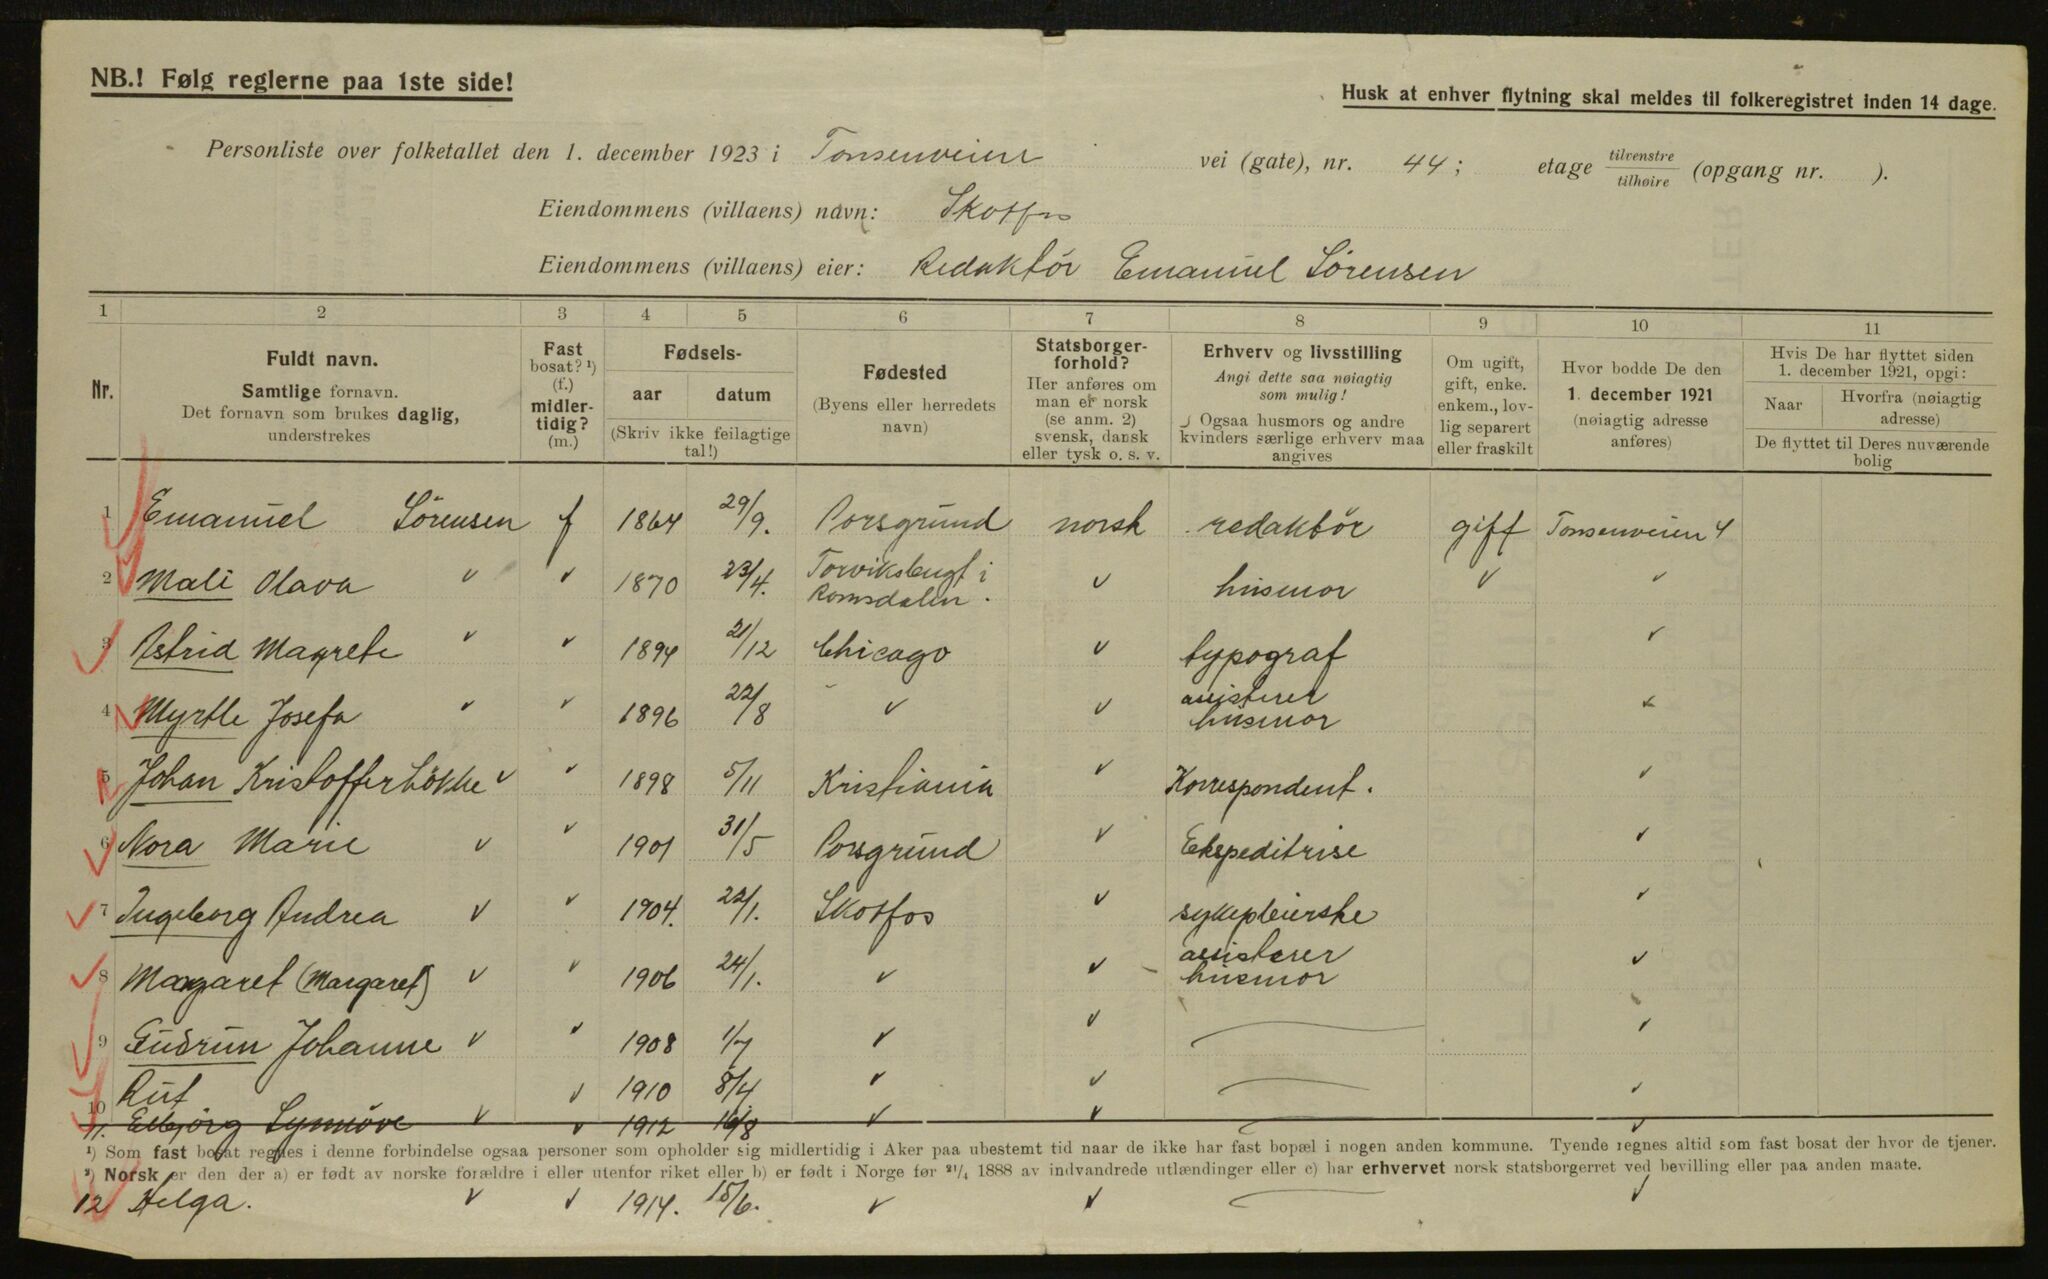 NB.! Følg reglerne paa 1ste side!
Husk at enhver flytning skal meldes til folkeregistret inden 14 dage.
Personliste over folketallet den 1. december 1923 i Tonsenveien vei (gate), nr. 44; etage tilvenstre/tilhøire (opgang nr. ).
Eiendommens (villaens) navn: Skotfos
Eiendommens (villaens) eier: Redaktør Emanuel Sørensen
1 2 3 4 5 6 7 8 9 10 11
Nr.
Fuldt navn.
Samtlige fornavn.
Det fornavn som brukes daglig,
understrekes
Fast
bosat? ¹)
(f.)
midler-
tidig?
(m.)
Fødsels-
aar datum
(Skriv ikke feilagtige
tal!)
Fødested
(Byens eller herredets
navn)
Statsborger-
forhold?
Her anføres om
man er norsk
(se anm. 2)
svensk, dansk
eller tysk o. s. v.
Erhverv og livsstilling
Angi dette saa nøiagtig
som mulig!
Ogsaa husmors og andre
kvinders særlige erhverv maa
angives
Om ugift,
gift, enke.
enkem., lov-
lig separert
eller fraskilt
Hvor bodde De den
1. december 1921
(nøiagtig adresse
anføres)
Hvis De har flyttet siden
1. december 1921, opgi:
Naar Hvorfra (nøiagtig
adresse)
De flyttet til Deres nuværende
bolig
1 Emanuel Sørensen f 1864 29/9. Porsgrund norsk redaktør gift Tonsenveien 4
2 Mali Olava " ✓ 1870 23/4. Torviksbugt i Romsdalen. ✓ husmor ✓ ✓
3 Astrid Magrete " ✓ 1894 21/12 Chicago ✓ typograf ✓
4 Myrtle Josefa " ✓ 1896 22/8 ✓ ✓ assisterer husmor ✓
5 Johan Kristoffer Løkke ✓ ✓ 1898 5/11 Kristiania ✓ Korrespondent. ✓
6 Nora Marie ✓ ✓ 1901 31/5 Porsgrund ✓ Ekspeditrise ✓
7 Ingeborg Andrea ✓ ✓ 1904. 22/1. Skotfos ✓ sykepleierske ✓
8 Margaret (Margaret) ✓ ✓ 1906 24/1. ✓ ✓ assisterer husmor ✓
9 Gudrun Johanne ✓ ✓ 1908 1/7 ✓ ✓ ✓
10 Rut ✓ 1910 8/4 ✓ ✓ ✓
11. Synnöve ✓ ✓ 1912 16/8 ✓ ✓ ✓
¹) Som fast bosat regnes i denne forbindelse ogsaa personer som opholder sig midlertidig i Aker paa ubestemt tid naar de ikke har fast bopæl i nogen anden kommune. Tyende regnes altid som fast bosat der hvor de tjener.
²) Norsk er den der a) er født av norske forældre i eller utenfor riket eller b) er født i Norge før 21/4 1888 av indvandrede utlændinger eller c) har erhvervet norsk statsborgerret ved bevilling eller paa anden maate.
12 Helga. ✓ ✓ 1914. 15/6. ✓ ✓ ✓